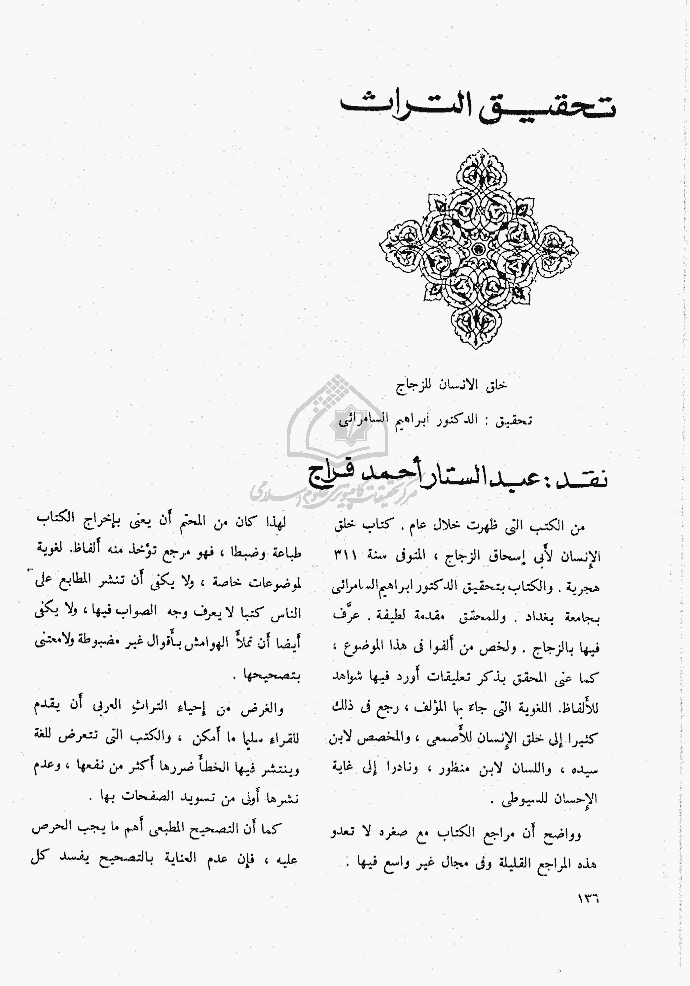 تحقيق التراث
خلق الانسان للزجاج
تحقيق : الدكتور ابراهيم السامرائى
نقد : عبد الستار أحمد فراج
من الكتب التى ظهرت خلال عام . كتاب خلق
الإنسان لأبى إسحاق الزجاج ، المتوفى سنة ٣١١
هجرية . والكتاب بتحقيق الدكتور ابراهيم السامرائى
بجامعة بغداد . وللمحقق مقدمة لطيفة . عرَّف
فيها بالزجاج . ولخص من ألفوا فى هذا الموضوع ،
كما عنى المحقق بذكر تعليقات أورد فيها شواهد
للألفاظ. اللغوية التى جاء بها المؤلف ، رجع فى ذلك
كثيرا إلى خلق الإنسان للأصمعى ، والمخصص لابن
سيده ، واللسان لابن منظور ، ونادرا إلى غاية
الإحسان للسيوطى .
وواضح أن مراجع الكتاب مع صغره لا تعدو
هذه المراجع القليلة وفى مجال غير واسع فيها .
لهذا كان من المحتم أن يعنى بإخراج الكتاب
طباعة وضبطا ، فهو مرجع تؤخذ منه ألفاظ. لغوية
لموضوعات خاصة ، ولا يكفى أن تنشر المطابع على
الناس كتبا لا يعرف وجه الصواب فيها ، ولا يكفى
أيضا أن تملأ الهوامش بأقوال غير مضبوطة ولا معتنى
بتصحيحها .
والغرض من إحياء التراث العربى أن يقدم
للقراء سليما ما أمكن ، والكتب التى تتعرض للغة
وينتشر فيها الخطأ ضررها أكثر من نفعها ، وعدم
نشرها أولى من تسويد الصفحات بها .
كما أن التصحيح المطبعى أهم ما يجب الحرص
عليه ، فإن عدم العناية بالتصحيح يفسد كل
١٣٦